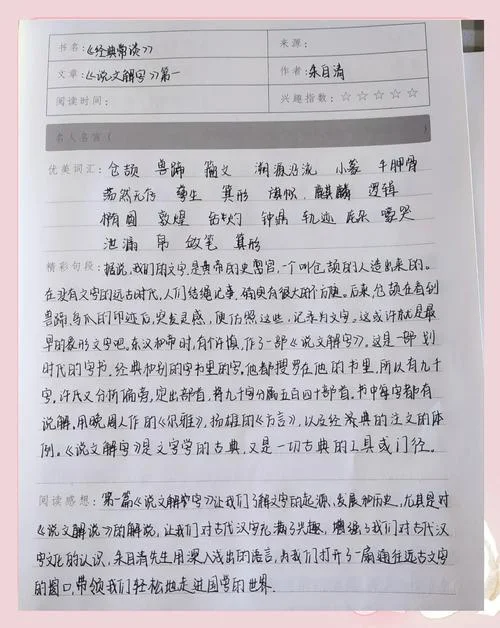 书名:《经典常谈》 来源:
文章:《说文解字》第一 作者:朱自清
阅读时间: 兴趣指数:☆☆☆☆☆
名人名言( )
优美词汇: 仓颉 兽蹄 籀文 溯源沿流 小篆 牛胛骨
荡然无存 孳生 箕形 旗帜 麒麟 逻辑
椭圆 敦煌 钻灼 钟鼎 轨迹 庞杂 嚎哭
泄漏 帛 败笔 箕形
精彩句段: 据说,我们的文字是黄帝的史官,一个叫仓颉的人造出来的。
在没有文字的远古时代,人们结绳记事,确实有很大的不便。后来,仓颉在看到
兽蹄、鸟爪的印迹后,突发灵感,便仿照这些,记录为文字。这或许就是最
早的象形文字吧。东汉和帝时,有个许慎,作了一部《说文解字》。这是一部划
时代的字书。经典和别的字书里的字,他都搜罗在他的书里,所以有九千
字。许氏又分析偏旁,定出部首,将九千字分属五百四十部首。书中每字都有
说解,用晚周人作的《尔雅》,扬雄的《方言》,以及经典的注文的体
例。《说文解字》是文字学的古典,又是一切古典的工具或门径。
阅读感想: 第一篇《说文解字》让我们了解文字的起源、发展和历史,尤其是对
《说文解说》的解说,让我们对古代汉字充满了兴趣,增强了我们对古代汉
字文化的认识,朱自清先生用深入浅出的语言,为我们打开了一扇通往远古文字
的窗口,带领我们轻松地走进国学的世界.